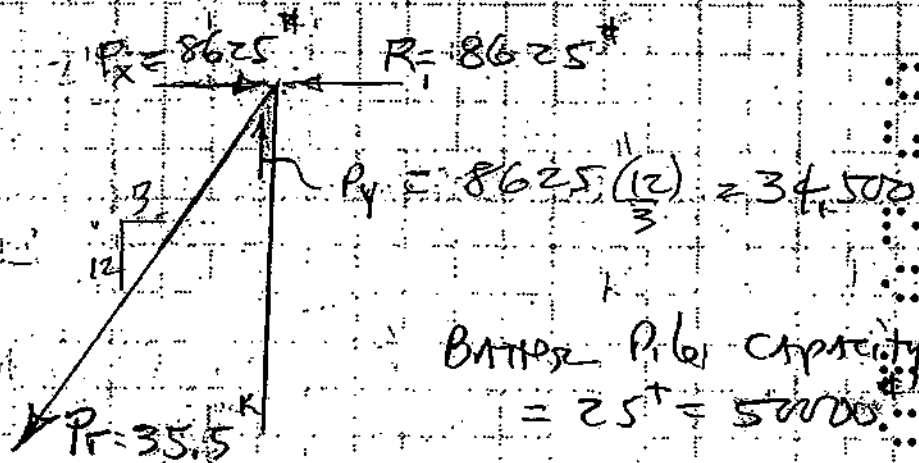 Px = 8625# R1 = 8625#
Py = 8625 (12/3) = 34,500
3
12
BATTER Pile CAPACITY
= 25T = 50000#
PT = 35.5K